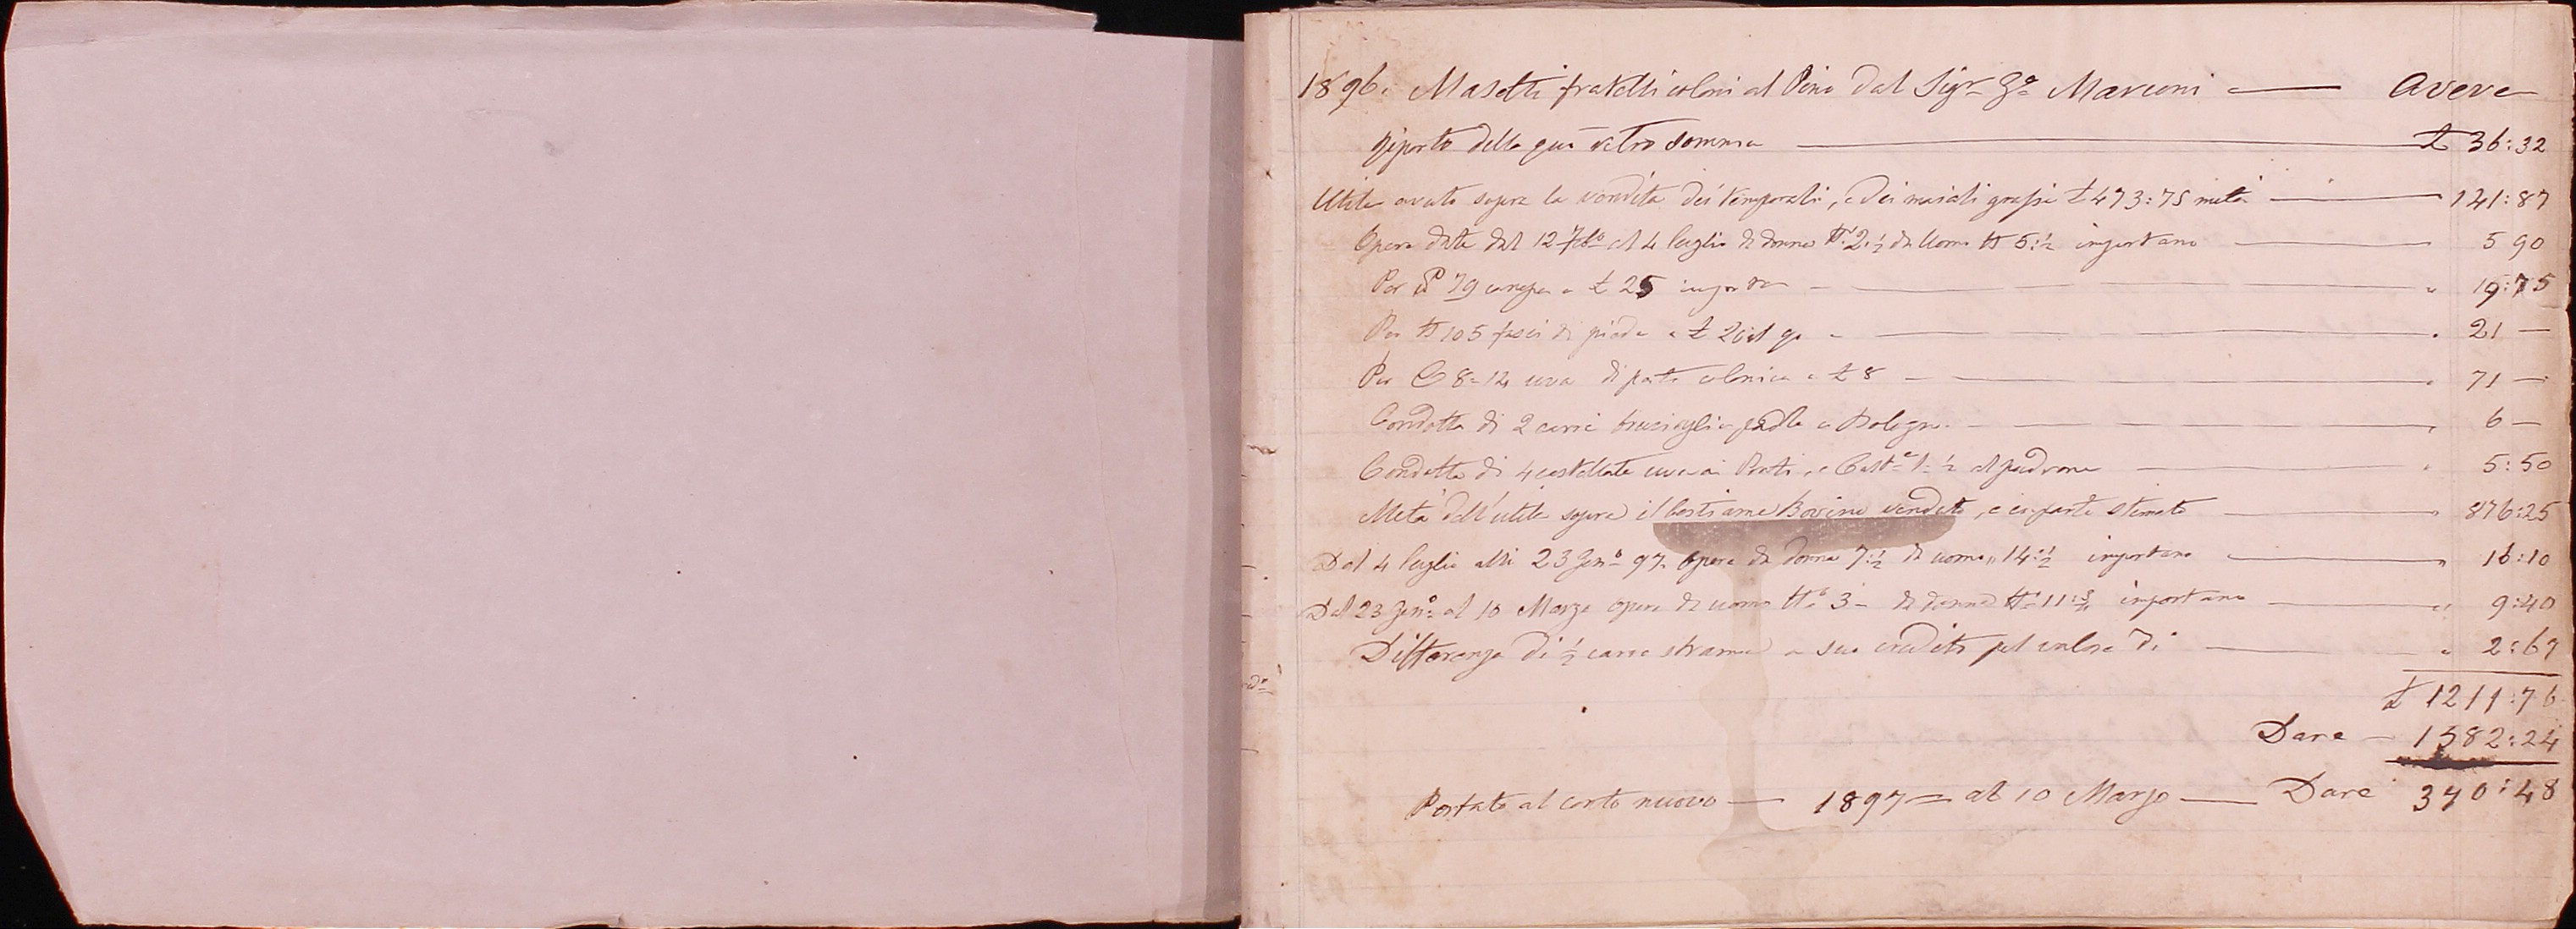 1896. Masetti fratelli coloni al Pino dal Sigr Ga Marconi — Avere
Riporto della qui retro somma — £ 36:32
Utile avuto sopra la vendita dei temporali, e dei maiali grassi £ 473:75 metà — 141:87
Opere date dal 12 Febo al 4 luglio da donna No 2:½ da uomo No 5:½ importano — 5 90
Per 79 canepa a £ 25 importa — " 19:75
Per No 105 fasci di a £ 20 il — " 21 —
Per C 8=12 uva di parte colonica a £ 8 — " 71 —
Condotta di 2 carri a Bologna — " 6 —
Condotta di 4 castellate uva ai Prati, e Caste 1:½ al padrone — " 5:50
Metà dell'utile sopra il bestiame Bovino venduto, e in parte stimato — " 876:25
Dal 4 luglio alli 23 Geno 97. Opere da donna 7:½ da uomo " 14:½ importano — " 16:10
Dal 23 Geno al 10 Marzo opere da uomo No 3 — da donna No 11:¾ importano — " 9:40
Differenza di ½ carro strame a suo credito pel valore di — " 2:67
£ 1211:76
Dare — 1582:24
Portato al conto nuovo — 1897 = al 10 Marzo — Dare 370:48